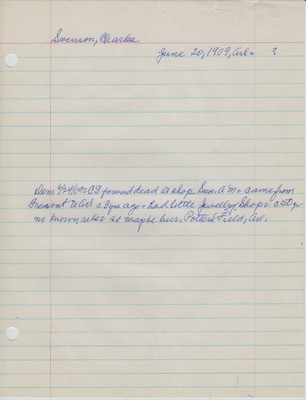 Swenson, Charles
June 20, 1909, Arl. ?
Dem 4/24/09 found dead at shop Sun. A M. came from
Fremont to Arl c 3 yrs ago. Had little Jewelry Shop. c 50 yr
no known relat so maybe bur. Potters Field, Arl.